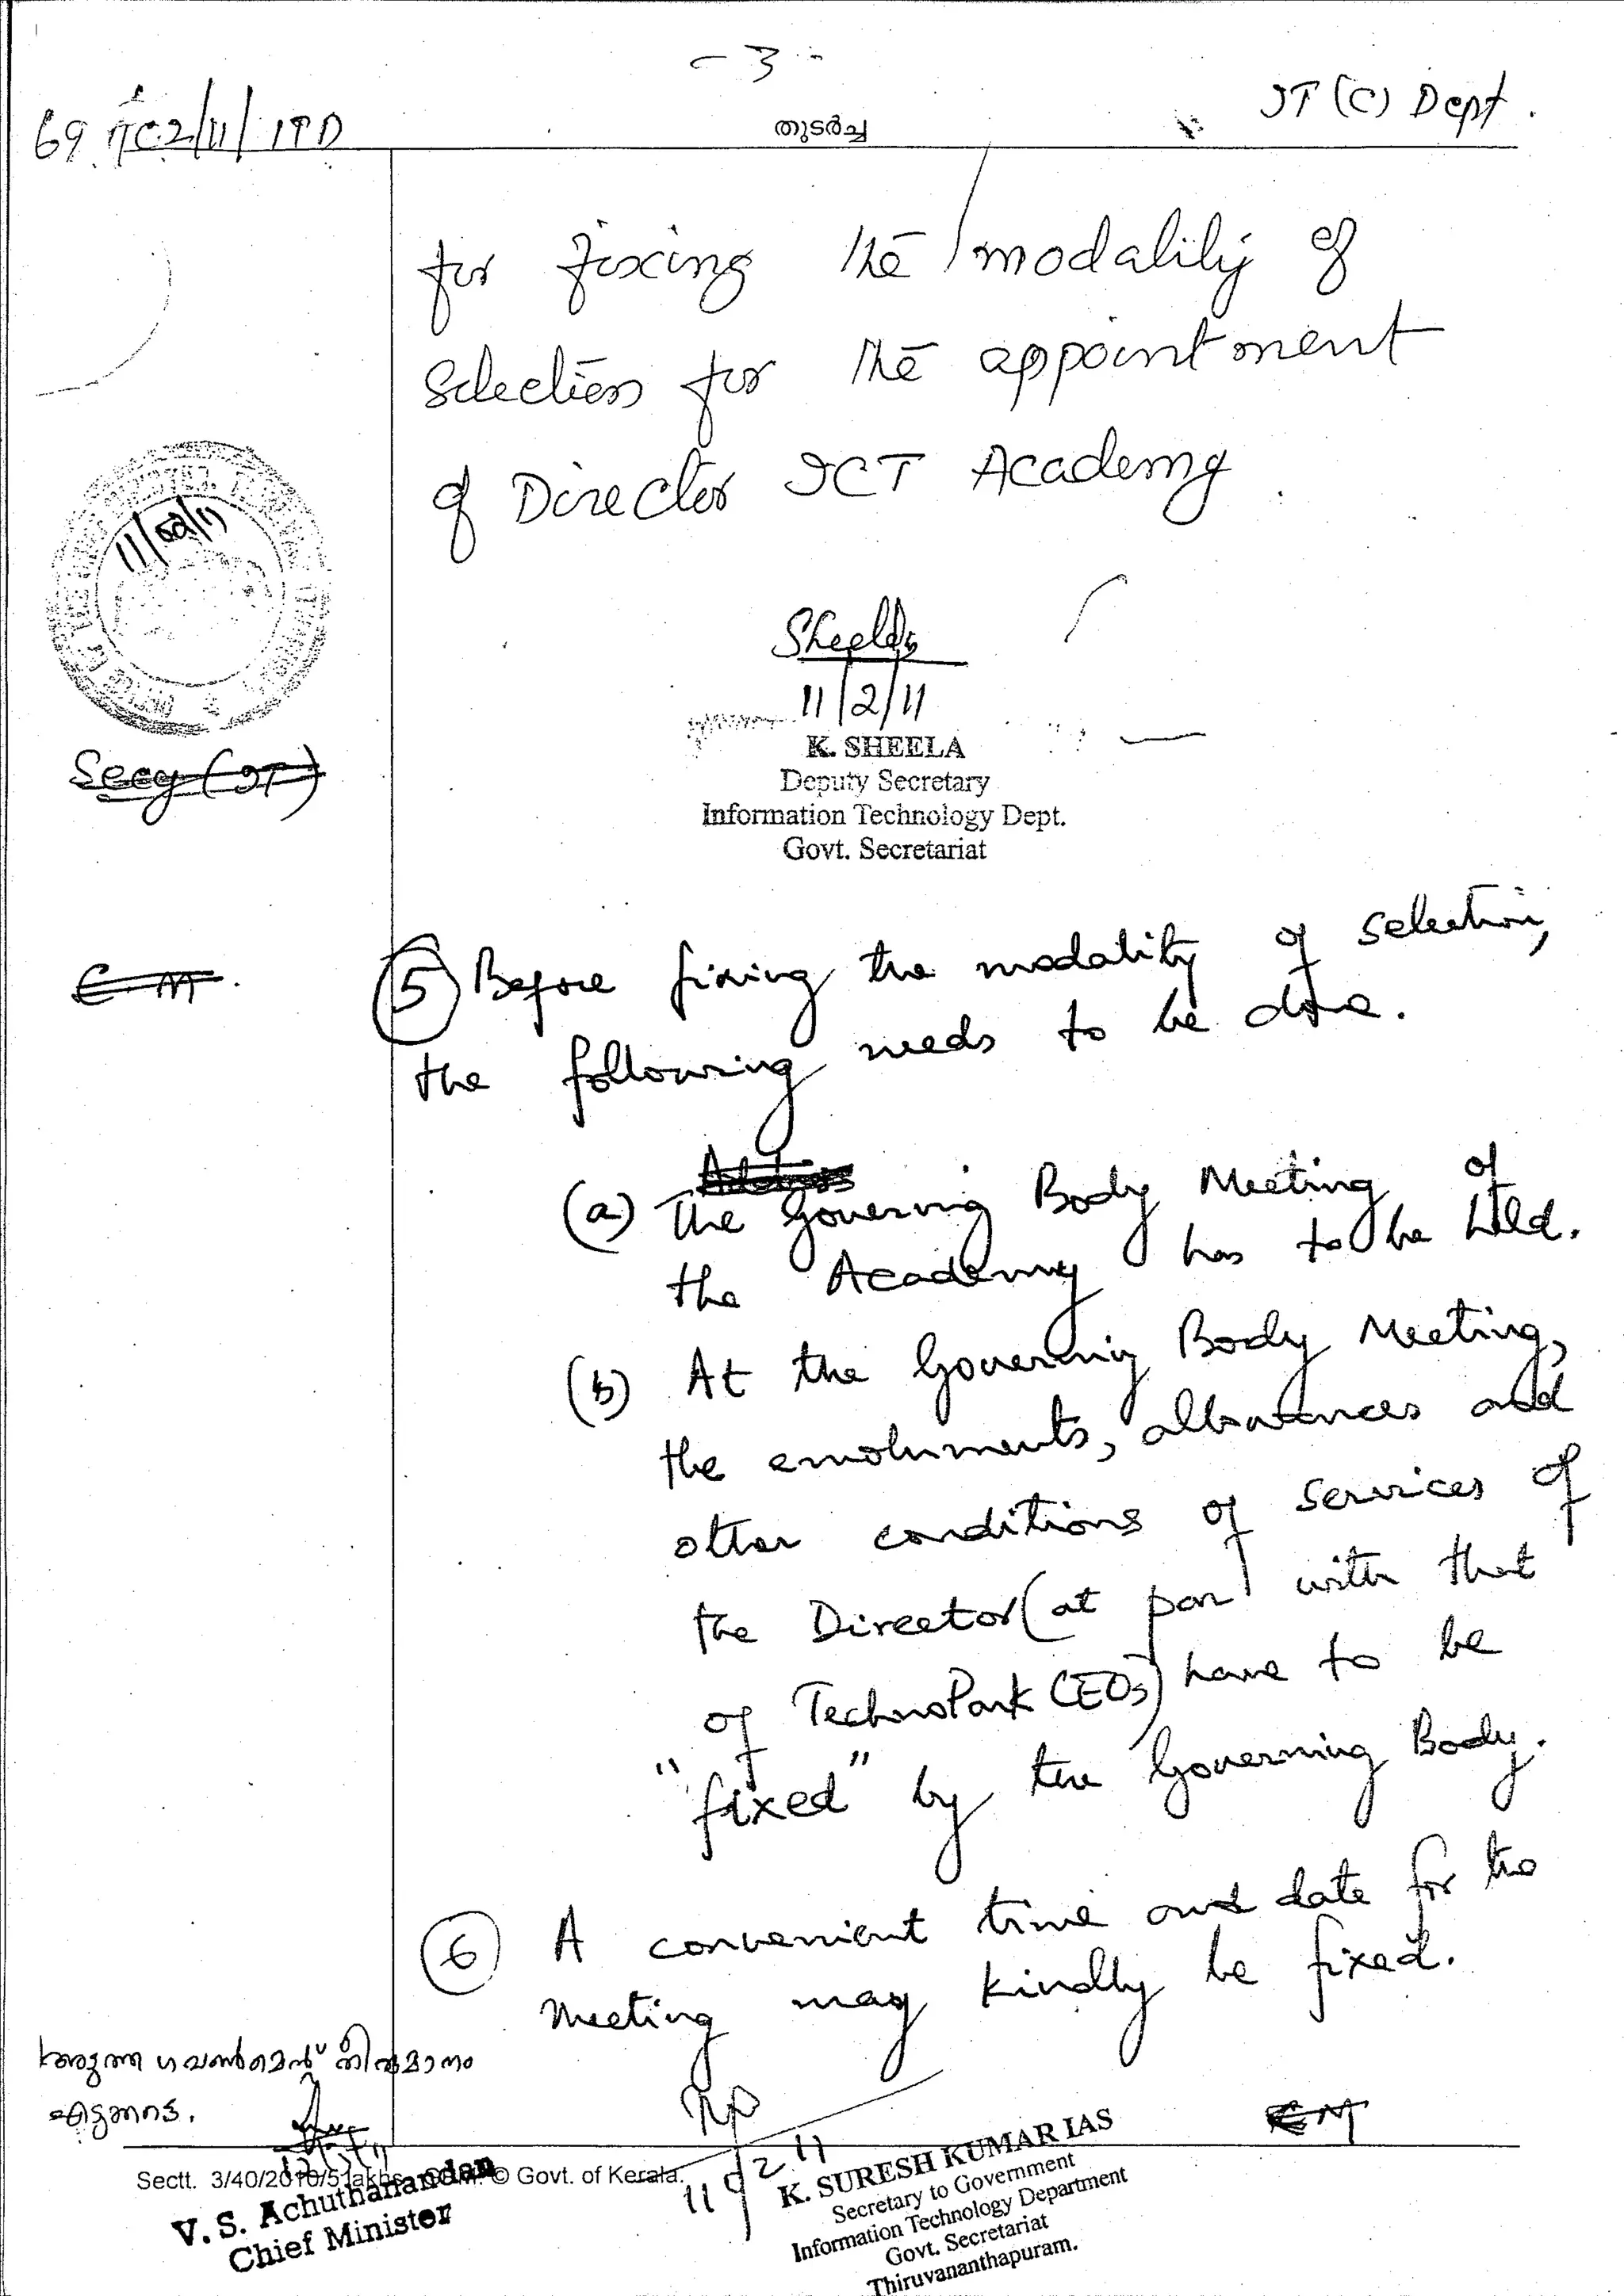 - 3 -
IT (C) Dept.
തുടർച്ച
for fixing the modality of
Selection for the appointment
of Director ICT Academy.
11/02/11
Sheela
11/2/11
K. SHEELA
Deputy Secretary
Information Technology Dept.
Govt. Secretariat
Secy (IT)
C.M.
(5) Before fixing the modality of selection,
the following needs to be done.
(a) The Governing Body Meeting of
the Academy has to be held.
(b) At the Governing Body Meeting,
the emoluments, allowances and
other conditions of services of
the Director (at par with that
of TechnoPark CEOs) have to be
"fixed" by the Governing Body.
(6) A convenient time and date for the
Meeting may kindly be fixed.
അടുത്ത ഗവൺമെന്റ് തീരുമാനം
എടുക്കട്ടെ.
CM
Sectt. 3/40/2010/5 lakhs © Govt. of Kerala.
V. S. Achuthanandan
Chief Minister
11/2/11
K. SURESH KUMAR IAS
Secretary to Government
Information Technology Department
Govt. Secretariat
Thiruvananthapuram.